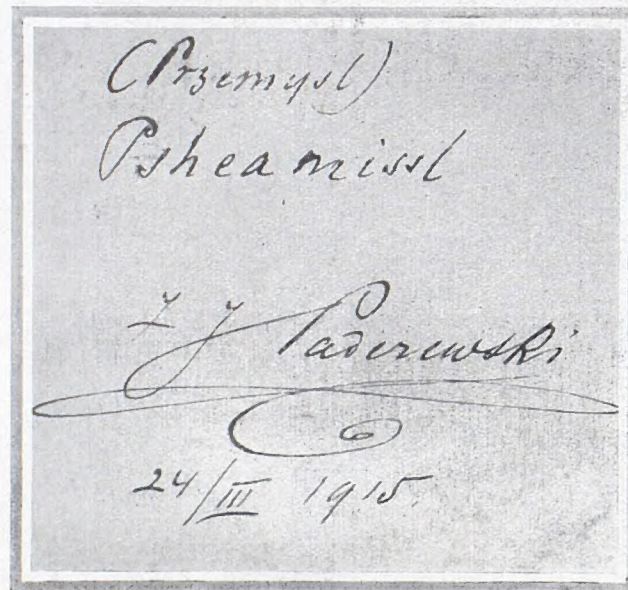 (Przemysl)
Psheamissl
I J Paderewski
24/III 1915